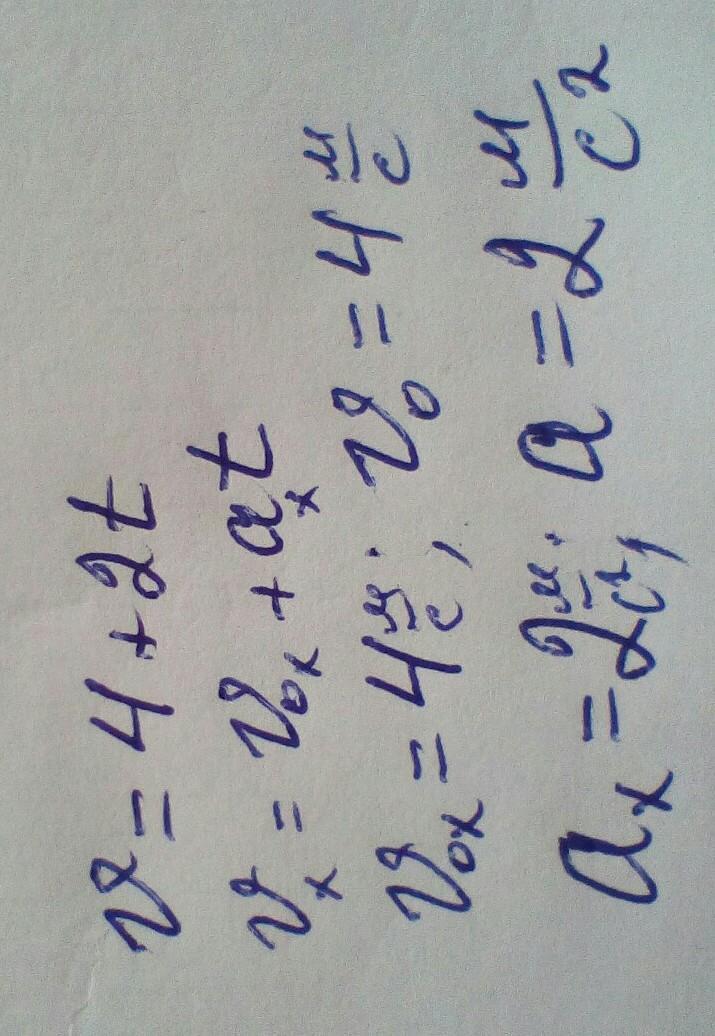 υ = 4 + 2t
υₓ = υ₀ₓ + aₓt
υ₀ₓ = 4 м/с; υ₀ = 4 м/с
aₓ = 2 м/с²; a = 2 м/с²